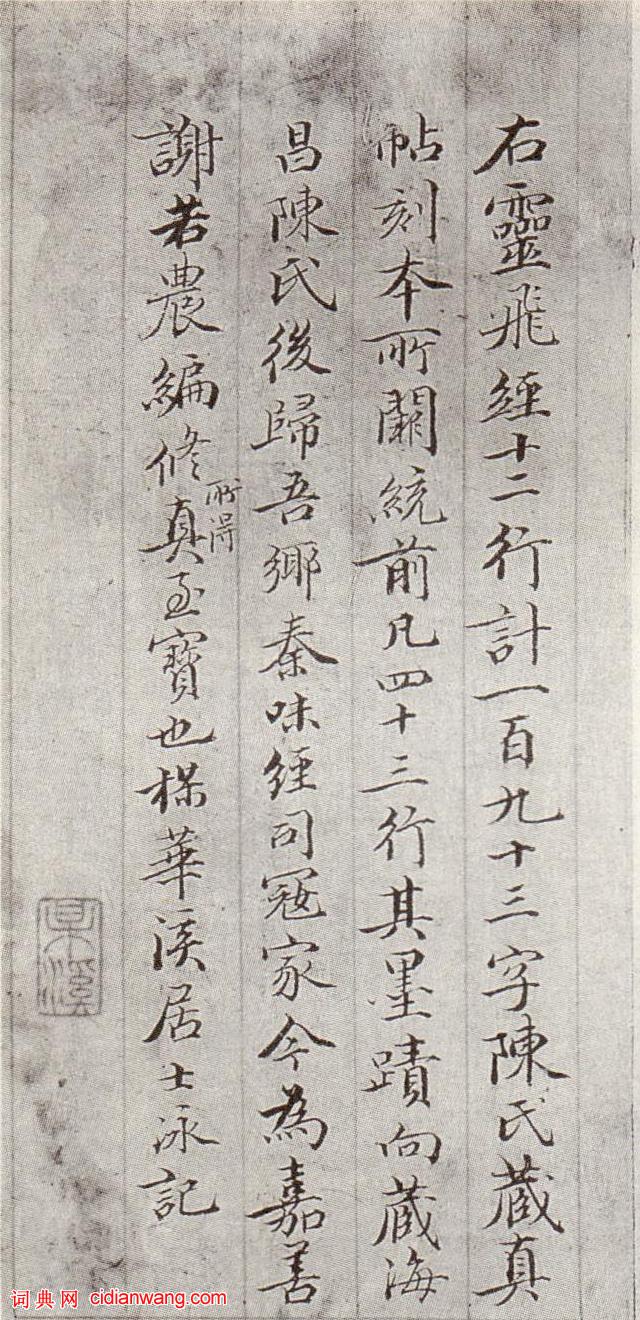 右靈飛經十二行計一百九十三字陳氏藏真
帖刻本所闕統前凡四十三行其墨蹟向藏海
昌陳氏後歸吾鄉秦味經司寇家今為嘉善
謝若農編修所得真至寶也楳華溪居士泳記
词典网 cidianwang.com